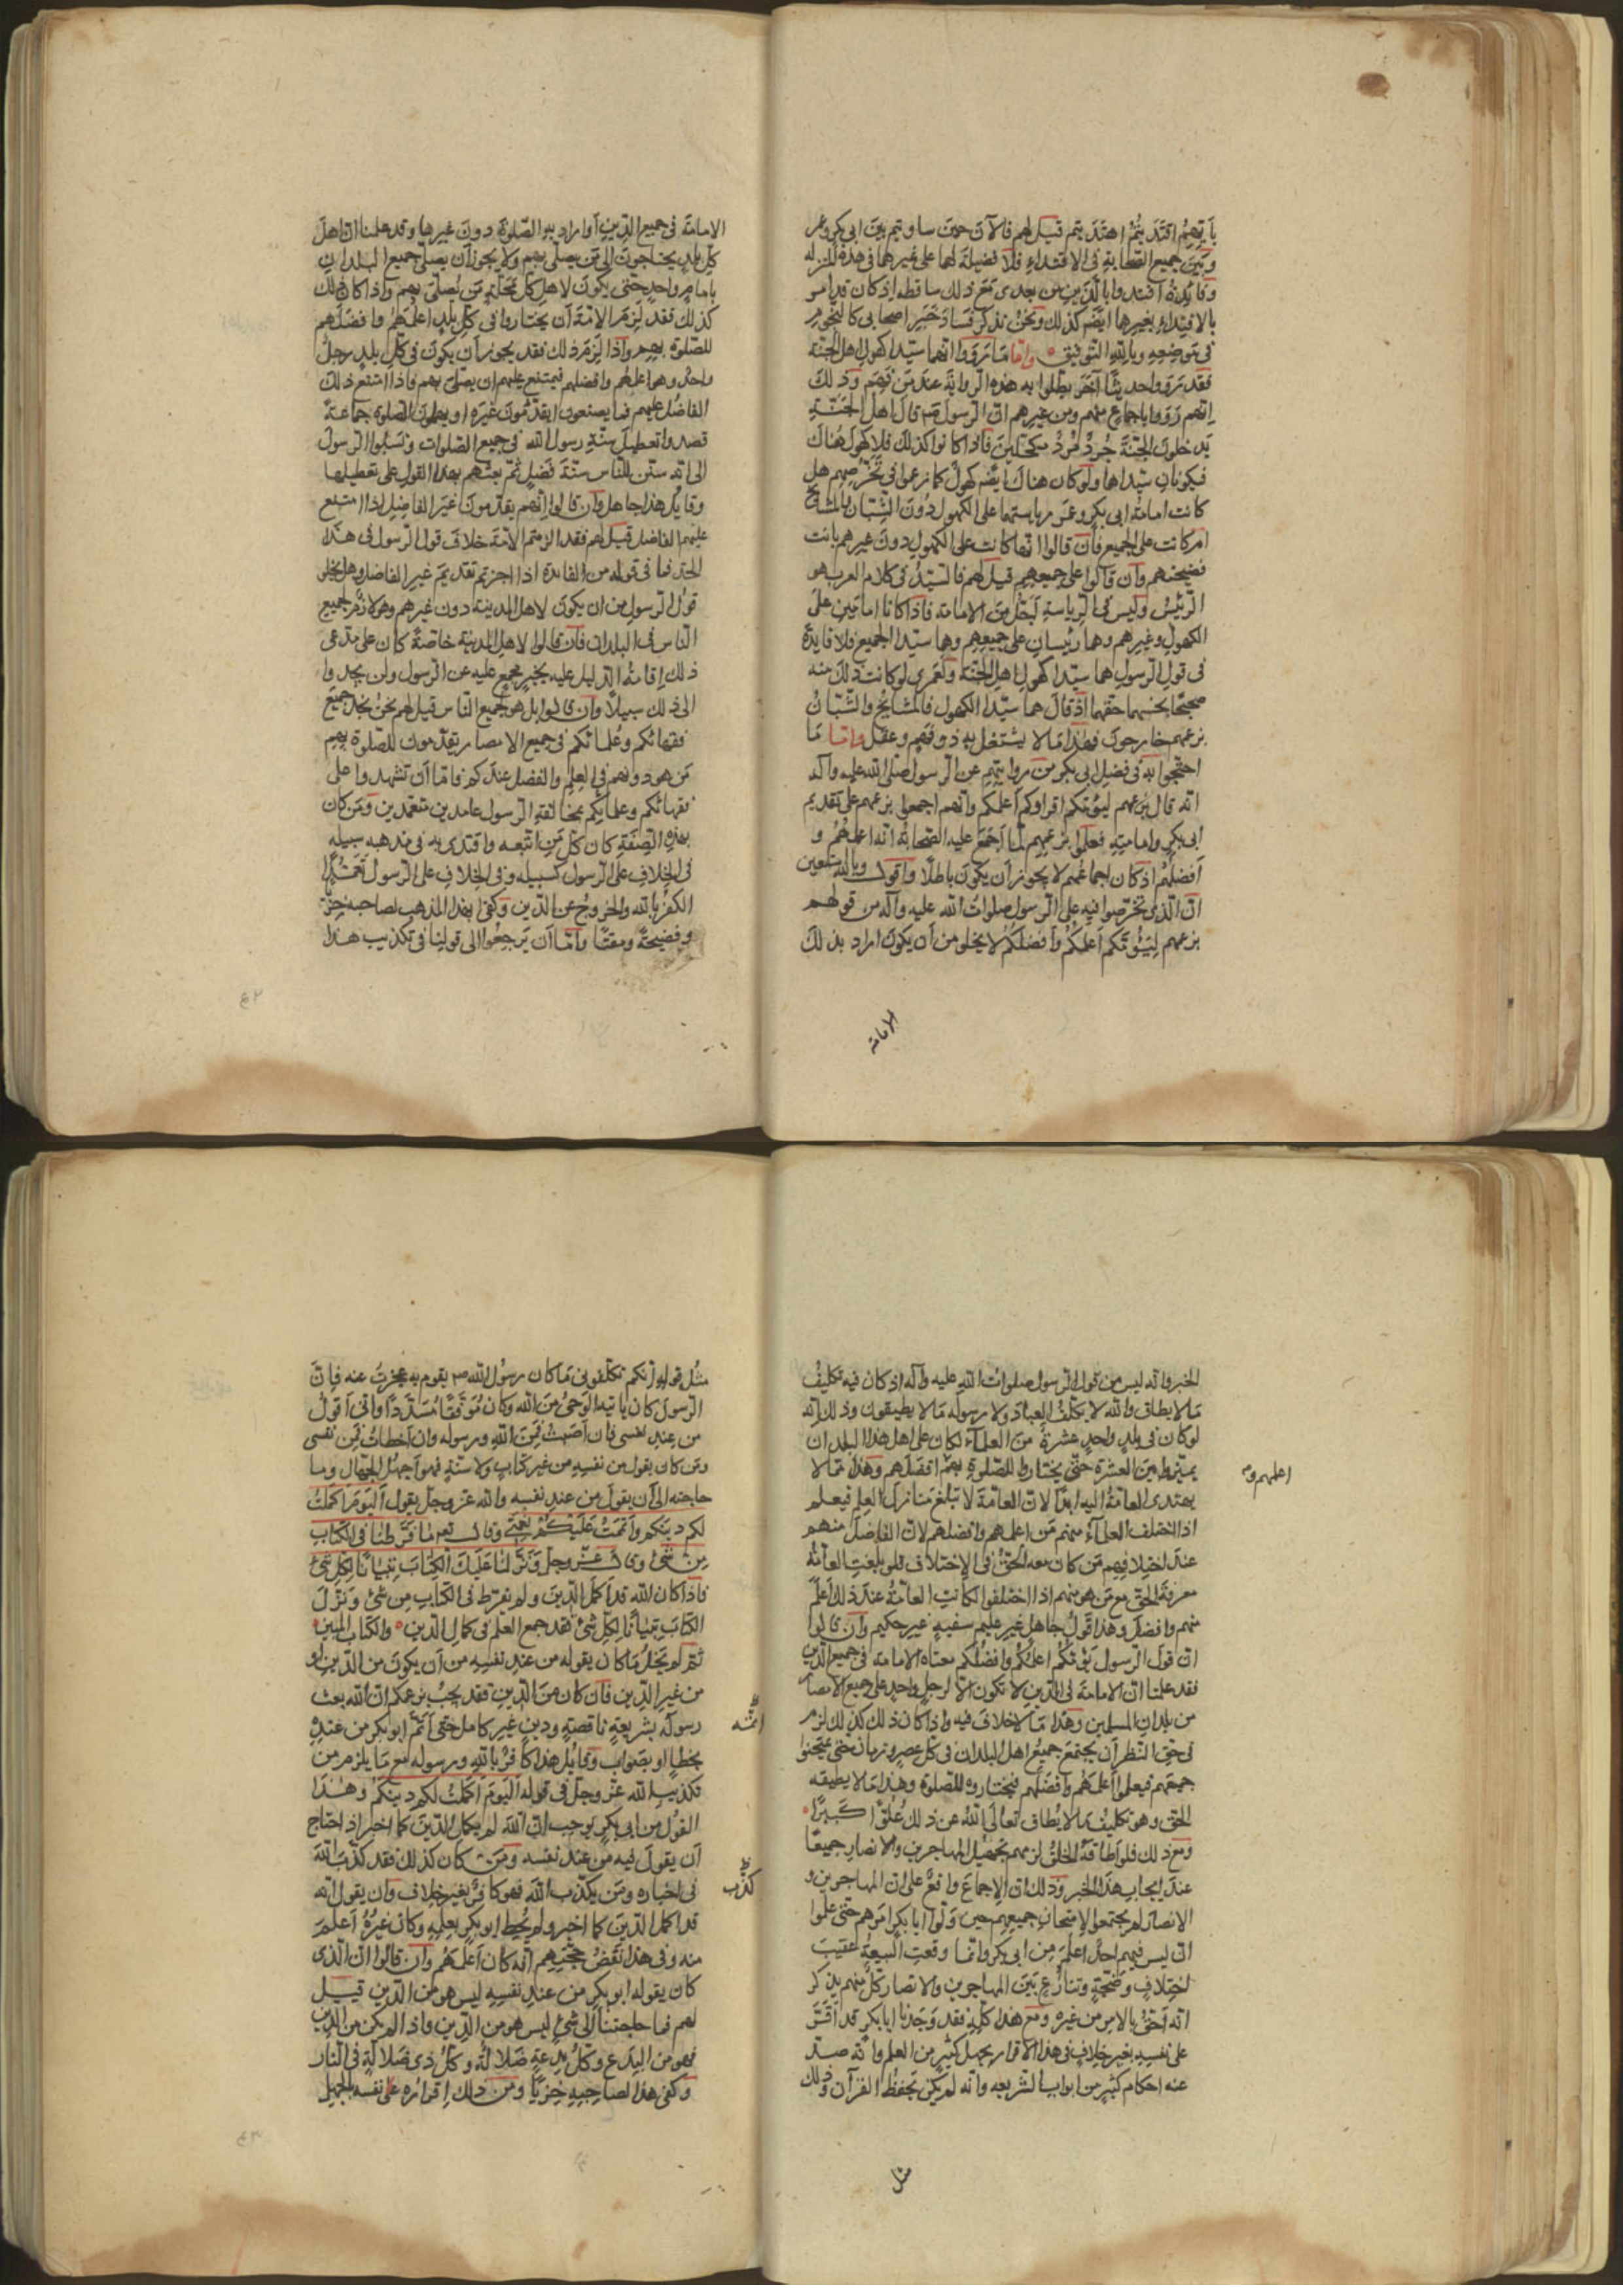 بأيّهم اقتديتم اهتديتم قيل لهم فالآن حين ساويتم بين ابى بكر وعمر
وبين جميع الصحابة فى الاقتداء فلا فضيلة لهما على غيرهما فى هذه المنزلة
وفايدة اقتدوا بالّذين من بعدى مع ذلك ساقطه اذ كان قد امر
بالاقتداء بغيرهما ايضه كذلك ونحن نذكر فساد خبر اصحابى كالنجوم
فى موضعه وبالله التوفيق وامّا ما رووا انهما سيّدا كهول اهل الجنّة
فقد رووا حديثًا آخر يبطلوا به هذه الرواية عند من فهم وذلك
انهم رووا باجماع منهم ومن غيرهم انّ الرسول قال اهل الجنّة
يدخلون الجنّة جرد مرد مكحّلين فاذا كانوا كذلك فلا كهول هناك
فيكونان سيّداها ولو كان هناك ايضه كهول كما زعموا فى تخرّصهم هل
كانت امامة ابى بكر وعمر رياستهما على الكهول دون الشبّان والمشايخ
ام كانت على الجميع فان قالوا انّها كانت على الكهول دون غيرهم بانت
فضيحتهم وان قالوا على جميعهم قيل لهم فالسيّد فى كلام العرب هو
الرئيس وليس فى الرياسة اجلّ من الامامة فاذا كانا امامين على
الكهول وغيرهم وهما رئيسان على جميعهم وهما سيّدا الجميع فلا فايدة
فى قول الرسول هما سيّدا كهول اهل الجنّة ولعمرى لو كانت ذلك منه
صحيحًا بخسهما حقهما اذ قال هما سيّدا الكهول فالمشايخ والشّبّان
بزعمهم خارجون فهذا ما لا يشتغل به ذو فهم وعقل وامّا ما
احتجّوا به فى فضل ابى بكر من روايتهم عن الرسول صلى الله عليه وآله
انه قال بزعمهم ليؤمّكم اقراوكم اعلمكم وانهم اجمعوا بزعمهم على تقديم
ابى بكر وامامته فعلموا بزعمهم لمّا اجمع عليه الصّحابة انه اعلمهم و
افضلهم اذ كان اجماعهم لا يجوز ان يكون باطلًا واقول وبالله استعين
انّ الّذى تخرّصوا فيه على الرسول صلوات الله عليه وآله من قولهم
بزعمهم ليؤمّكم اعلمكم وافضلكم لا يخلو من ان يكون اراد بذلك
الامامة
الامامة فى جميع الدّين أو اراد به الصّلوة دون غيرها وقد علمنا انّ اهل
كلّ بلد يحتاجون الى من يصلّى بهم ولا يجوز أن يصلّى جميع البلدان
بامام واحد حتى يكون لاهل كلّ محلّة من يصلّى بهم واذا كان ذلك
كذلك فقد لزم الامّة أن يختاروا فى كلّ بلد اعلمهم وافضلهم
للصّلوة بهم واذا لزم ذلك فقد يجوز أن يكون فى كلّ بلد رجل
واحد وهو اعلمهم وافضلهم فيمتنع عليهم ان يصلّى بهم فاذا امتنع ذلك
الفاضل عليهم فما يصنعون ايقدّمون غيره او يبطلون الصلوة جماعة
قصدوا تعطيل سنّة رسول الله فى جميع الصلوات ونسبوا الرسول
الى انه سنّ للنّاس سنّة فضل ثمّ بعثهم بهذا القول على تعطيلها
وقايل هذا جاهل وان قالوا انهم يقدّمون غير الفاضل اذا امتنع
عليهم الفاضل قيل لهم فقد الزمتم الامّة خلاف قول الرسول فى هذا
الحدّ فما فى قوله من الفايدة اذا اجزتم تقديم غير الفاضل وهل يخلو
قول الرسول من ان يكون لاهل المدينة دون غيرهم وهو لازم لجميع
النّاس فى البلدان فان قالوا لاهل المدينة خاصّة كان على مدّعى
ذلك اقامة الدّليل عليه بخبر مجمع عليه عن الرسول ولن يجدوا
الى ذلك سبيلًا وان قالوا بل هو لجميع النّاس قيل لهم نحن نجد جميع
فقهائكم وعلمائكم فى جميع الامصار يقدّمون للصّلوة بهم
من هو دونهم فى العلم والفضل عندكم فامّا أن تشهدوا على
فقهائكم وعلمائكم بمخالفة الرسول عامدين متعمّدين ومن كان
بهذه الصّفة كان كلّ من اتّبعه واقتدى به فى مذهبه سبيله
فى الخلاف على الرسول كسبيله وفى الخلاف على الرسول تعمّدًا
الكفر بالله والخروج عن الدّين وكفى بهذا المذهب لصاحبه خزيًا
وفضيحة ومقتًا وامّا أن يرجعوا الى قولنا فى تكذيب هذا
الخبر وانّه ليس من قول الرسول صلوات الله عليه وآله اذ كان فيه تكليف
ما لا يطاق والله لا يكلّف العباد ولا رسوله ما لا يطيقون وذلك انّه
لو كان فى بلد واحد عشرة من العلماء لكان على اهل هذا البلد ان
يميّزوا بين العشرة حتى يختاروا للصّلوة بهم افضلهم وهذا ممّا لا
اعلمهم و
يهتدى العامّة اليه ابدًا لانّ العامّة لا تبلغ منازل العلم فيعلم
اذا اختلف العلماء منهم من اعلمهم وافضلهم لانّ الفاضل منهم
عند اختلافهم من كان معه الحقّ فى الاختلاف فلو بلغت العامّة
معرفة الحق مع من هو منهم اذا اختلفوا لكانت العامّة عند ذلك اعلم
منهم وافضل وهذا قول جاهل غير عليم سفيه غير حكيم وان قالوا
انّ قول الرسول يؤمّكم اعلمكم وافضلكم معناه الامامة فى جميع الدّين
فقد علمنا انّ الامامة فى الدّين لا تكون الّا لرجل واحد على جميع الامصار
من بلدان المسلمين وهذا ما لا خلاف فيه واذا كان ذلك كذلك لزم
فى حقّ النّظر أن يجتمع جميع اهل البلدان فى كلّ عصر وزمان حتى يمتحنوا
جميعهم فيعلموا أعلمهم وأفضلهم فيختاروه للصّلوة وهذا ما لا يطيقه
الخلق وهو تكليف ما لا يُطاق تعالى الله عن ذلك علوًّا كبيرًا
ومع ذلك فلو اطاقه الخلق لزمهم تجهيل المهاجرين والانصار جميعًا
عند ايجاب هذا الخبر وذلك انّ الاجماع واقع على انّ المهاجرين و
الانصار لم يجتمعوا لامتحان جميعهم حين ولّوا ابا بكر امرهم حتى علموا
ان ليس فيهم احد اعلم من ابى بكر وانّما وقعت البيعة عقيب
اختلاف وضجّة وتنازع بين المهاجرين والانصار كلّ منهم يذكر
انه احقّ بالامر من غيره ومع هذا كلّه فقد وجدنا ابا بكر قد اقرّ
على نفسه بغير خلاف فى هذا الاقرار بجهل كثير من العلم وانّه صدّ
عنه احكام كثير من ابواب الشريعه وانه لم يكن تحفظ القرآن وذلك
مثل
مثل قوله انكم تكلّفونى ما كان رسول الله ص يقوم به عجزت عنه فانّ
الرسول كان يأتيه الوحى من الله وكان موفّقًا مسدّدًا وانّى أقول
من عند نفسى فان أصبت فمن الله ورسوله وان اخطأت فمن نفسى
ومن كان يقول من نفسه من غير كتاب ولا سنّة فهو أجهل الجهّال وما
حاجته الى أن يقول من عند نفسه والله عزّ وجلّ يقول اليوم اكملت
لكم دينكم واتممت عليكم نعمتى وقال تعم ما فرّطنا فى الكتاب
من شئ وقال عزّ وجلّ ونزّلنا عليك الكتاب تبيانًا لكلّ شئ
فاذا كان الله قد أكمل الدّين ولم يفرّط فى الكتاب من شئ ونزّل
الكتاب تبيانًا لكلّ شئ فقد جمع العلم فى كمال الدّين والكتاب المبين
ثم لم تخل ما كان يقوله من عند نفسه من أن يكون من الدّين او
من غير الدّين فان كان من الدّين فقد يجب بزعمكم انّ الله بعث
رسوله بشريعة ناقصة ودين غير كامل حتى أتمّ ابو بكر من عنده
اتمّه
بخطا او بصواب وقايل هذا كافر بالله ورسوله مع ما يلزم من
تكذيب الله عزّ وجلّ فى قوله اليوم اكملت لكم دينكم وهذا
القول من ابى بكر يوجب انّ الله لم يكمل الدّين كما اخبر اذ احتاج
أن يقول فيه من عند نفسه ومن كان كذلك فقد كذّب الله
كذّب
فى اخباره ومن يكذّب الله فهو كافر بغير خلاف وان يقول انّه
قد اكمل الدّين كما اخبر ولم يُحط ابو بكر بعلمه وكان غيره أعلم
منه وفى هذا نقض حجّتهم انّه كان أعلمهم وان قالوا انّ الّذى
كان يقوله ابو بكر من عند نفسه ليس هو من الدّين قيل
لهم فما حاجتنا الى شئ ليس هو من الدّين واذا لم يكن من الدّين
فهو من البدع وكلّ بدعة ضلالة وكلّ ذى ضلالة فى النّار
وكفى هذا لصاحبه خزيًا ومن ذلك اقراره على نفسه بالجهل